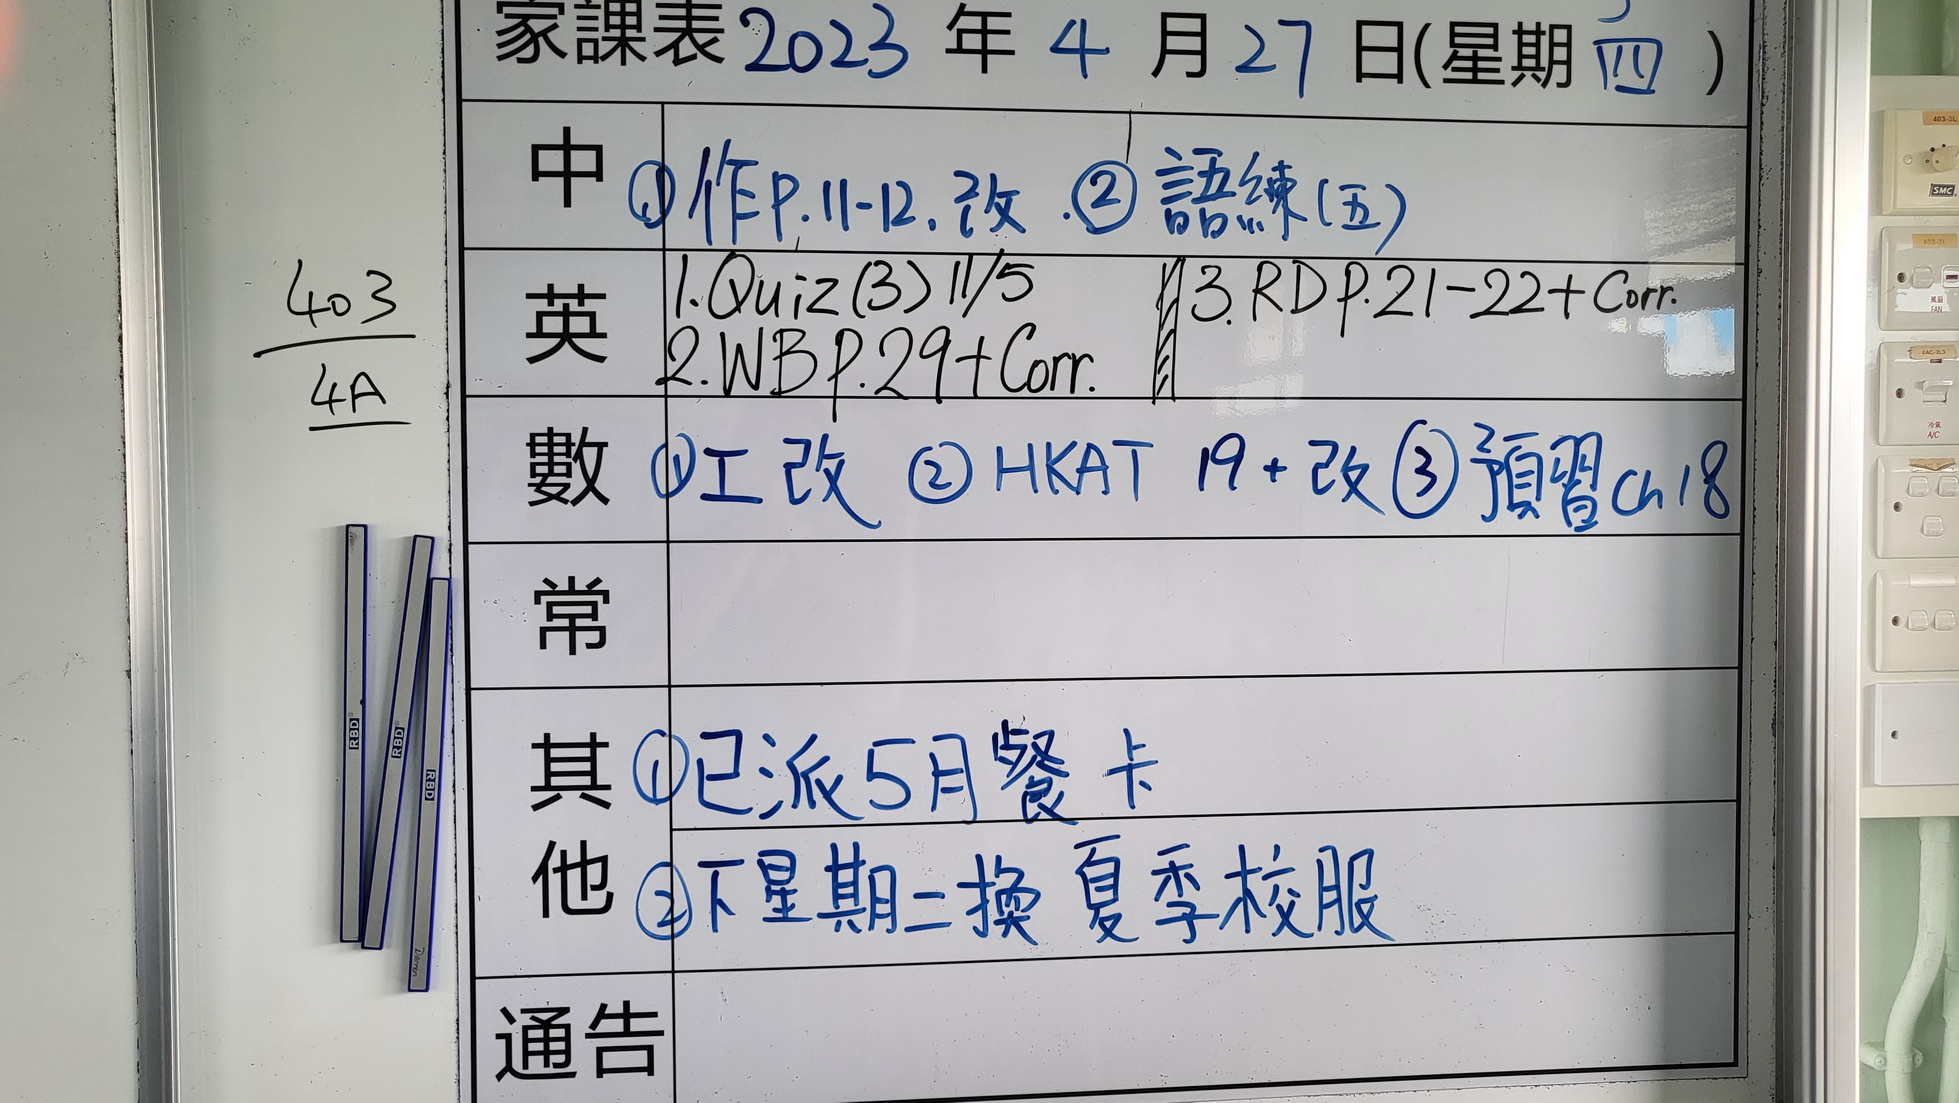 家課表2023年4月27日(星期四)
中 ①作P.11-12.改 ②語練(五)
英 1.Quiz(3) 11/5 3.RD P.21-22+Corr.
2.WB P.29+Corr.
數 ①工改 ②HKAT 19+改 ③預習ch18
常
其他 ①已派5月餐卡
②下星期二換夏季校服
通告
403
4A
RBD
RBD
RBD
403-3L
SMC
403-3L
風扇
FAN
4AC-3L3
冷氣
A/C